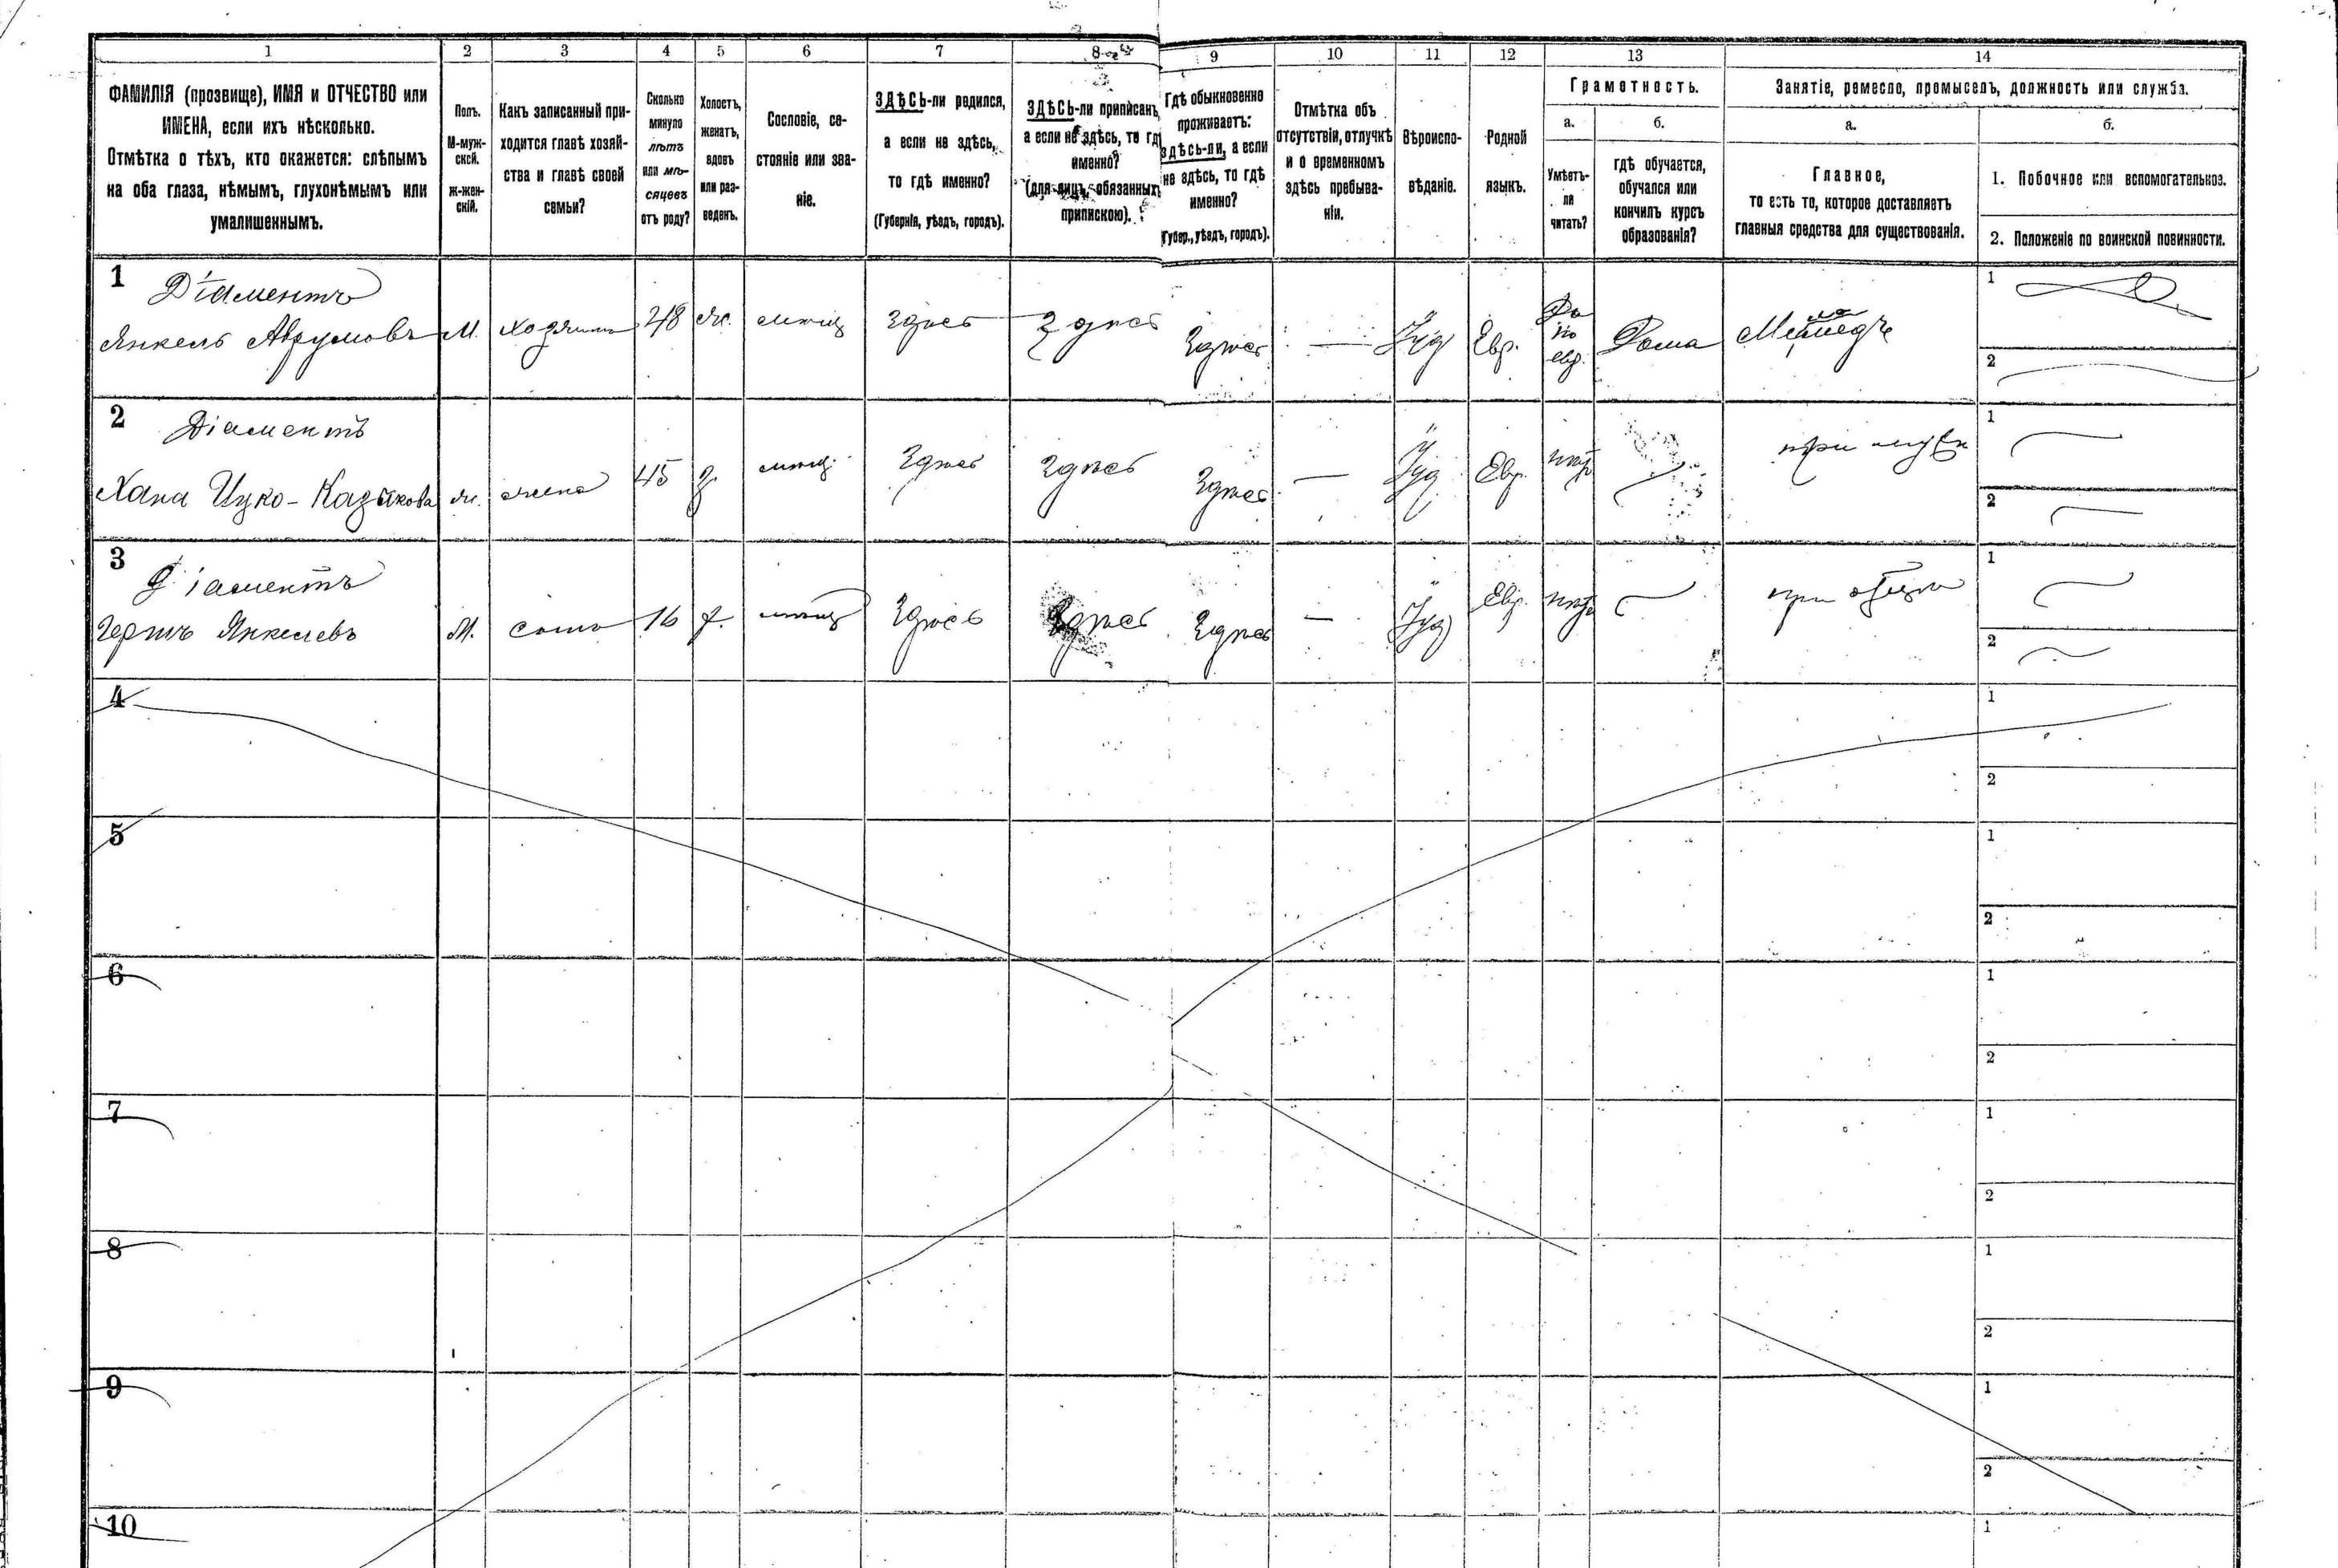 1 2 3 4 5 6 7 8 9 10 11 12 13 14
ФАМИЛІЯ (прозвище), ИМЯ и ОТЧЕСТВО или
ИМЕНА, если ихъ нѣсколько.
Отмѣтка о тѣхъ, кто окажется: слѣпымъ
на оба глаза, нѣмымъ, глухонѣмымъ или
умалишеннымъ.
Полъ.
М-муж-
ской.
ж-жен-
скій.
Какъ записанный при-
ходится главѣ хозяй-
ства и главѣ своей
семьи?
Сколько
минуло
лѣтъ
или мѣ-
сяцевъ
отъ роду?
Холостъ,
женатъ,
вдовъ
или раз-
веденъ.
Сословіе, со-
стояніе или зва-
ніе.
ЗДѢСЬ-ли родился,
а если не здѣсь,
то гдѣ именно?
(Губернія, уѣздъ, городъ).
ЗДѢСЬ-ли приписанъ,
а если не здѣсь, то гдѣ
именно?
(для лицъ, обязанныхъ
припискою).
Гдѣ обыкновенно
проживаетъ:
здѣсь-ли, а если
не здѣсь, то гдѣ
именно?
(Губер., уѣздъ, городъ).
Отмѣтка объ
отсутствіи, отлучкѣ
и о временномъ
здѣсь пребыва-
ніи.
Вѣроиспо-
вѣданіе.
Родной
языкъ.
Грамотность.
а.
Умѣетъ-
ли
читать?
б.
гдѣ обучается,
обучался или
кончилъ курсъ
образованія?
Занятіе, ремесло, промыселъ, должность или служба.
а.
Главное,
то есть то, которое доставляетъ
главныя средства для существованія.
б.
1. Побочное или вспомогательное.
2. Положеніе по воинской повинности.
1 Діаментъ
Янкель Аврумовъ М. хозяинъ 48 ж. мѣщ Здѣсь Здѣсь Здѣсь — Іуд Евр. Да по евр. Дома 1
2
2 Діаментъ
Хана Ицко- ж. жена 45 з. мѣщ. Здѣсь Здѣсь Здѣсь — Іуд Евр. нѣтъ при мужѣ 1
2
3 Діаментъ
Герть Янкелевъ М. сынъ 16 х. мѣщ Здѣсь Здѣсь Здѣсь — Іуд Евр. нѣтъ при отцѣ 1
2
4 1
2
5 1
2
6 1
2
7 1
2
8 1
2
9 1
2
10 1